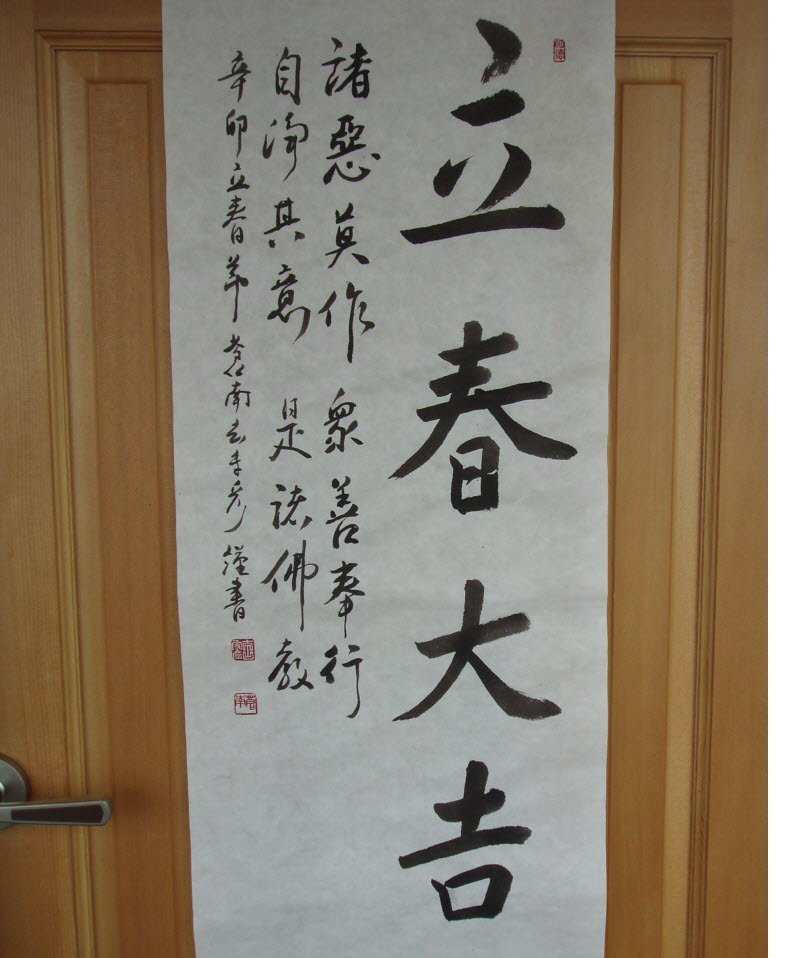 立春大吉
諸惡莫作 衆善奉行
自淨其意 是諸佛敎
辛卯立春節 南 謹書